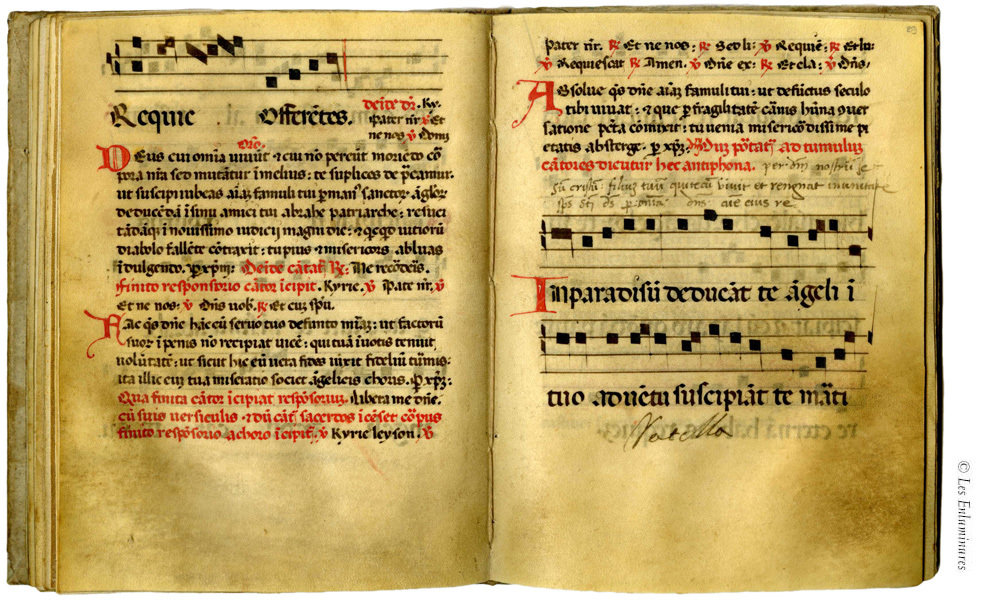 Requie Offerētes. deīde dr̄. Ky.
Pater nr̄ ℣ Et
ne nos ℣ Domi
Orō.
Deus cui omnia vivūt ⁊ cui nō pereūt moriēdo cō
pora nr̄a sed mutātur ī melius: te suplices
ut suscipi iubeas aīaȝ famuli tui sanctor̄ āglor̄
deducēdā ī sinu amici tui abrahe patriarche: resusci
tādāqȝ ī novissimo iudicij magni die: ⁊ vitiorū
diabolo fallēte cōtraxit: tu pius ⁊ misericors abluas
īdulgendo. Deīde cātat̄ ℟: Ne recōdeīs.
finito responsorio cātor īcipit. Kyrie. ℣ Pate nr̄. ℣
Et ne nos: ℣ Dn̄s vob. ℟ Et cuȝ spū.
Fac qs̄ dn̄e hāc cū servo tuo defunto mīaȝ: ut factorū
suor̄ ī penis nō recipiat vicē: qui tuā ī votis tenuit
volūtatē: ut sicut hic eū vera fides iūxit fideliū tūmis:
ita illic euȝ tua miseratio societ āgelicis choris.
Qua finita cātor īcipiat respōsoriuȝ. Libera me dn̄e.
cū suis versiculis ⁊ dū cāt̄ sacerdos īcēset corpus
finito respōsorio a choro īcipit̄. ℣ Kyrie leyson. ℣
Pater nr̄. ℟ Et ne nos: ℟ Sed li: ℣ Requiē: ℟ Et lu:
℣ Requiescat ℟ Amen. ℣ Dn̄e ex: ℟ Et cla: ℣ Dn̄s:
Absolve qs̄ dn̄e aīaȝ famuli tui: ut defūctus seculo
tibi vivat: ⁊ que p̄ fragilitatē carnis hūna cōver
satione pctā comixit: tu venia misericōdissime pi
etatis absterge. Duȝ pōtat̄ ad tumuluȝ
cātores dicūtur hec antiphona. per dnm nostrū Je
sū cristū filiuȝ tuū qui tecū vivit et regnat in unitate
sps sctī ds per omnia dns
In paradisū deducāt te āgeli ī
tuo advētu suscipiāt te māti